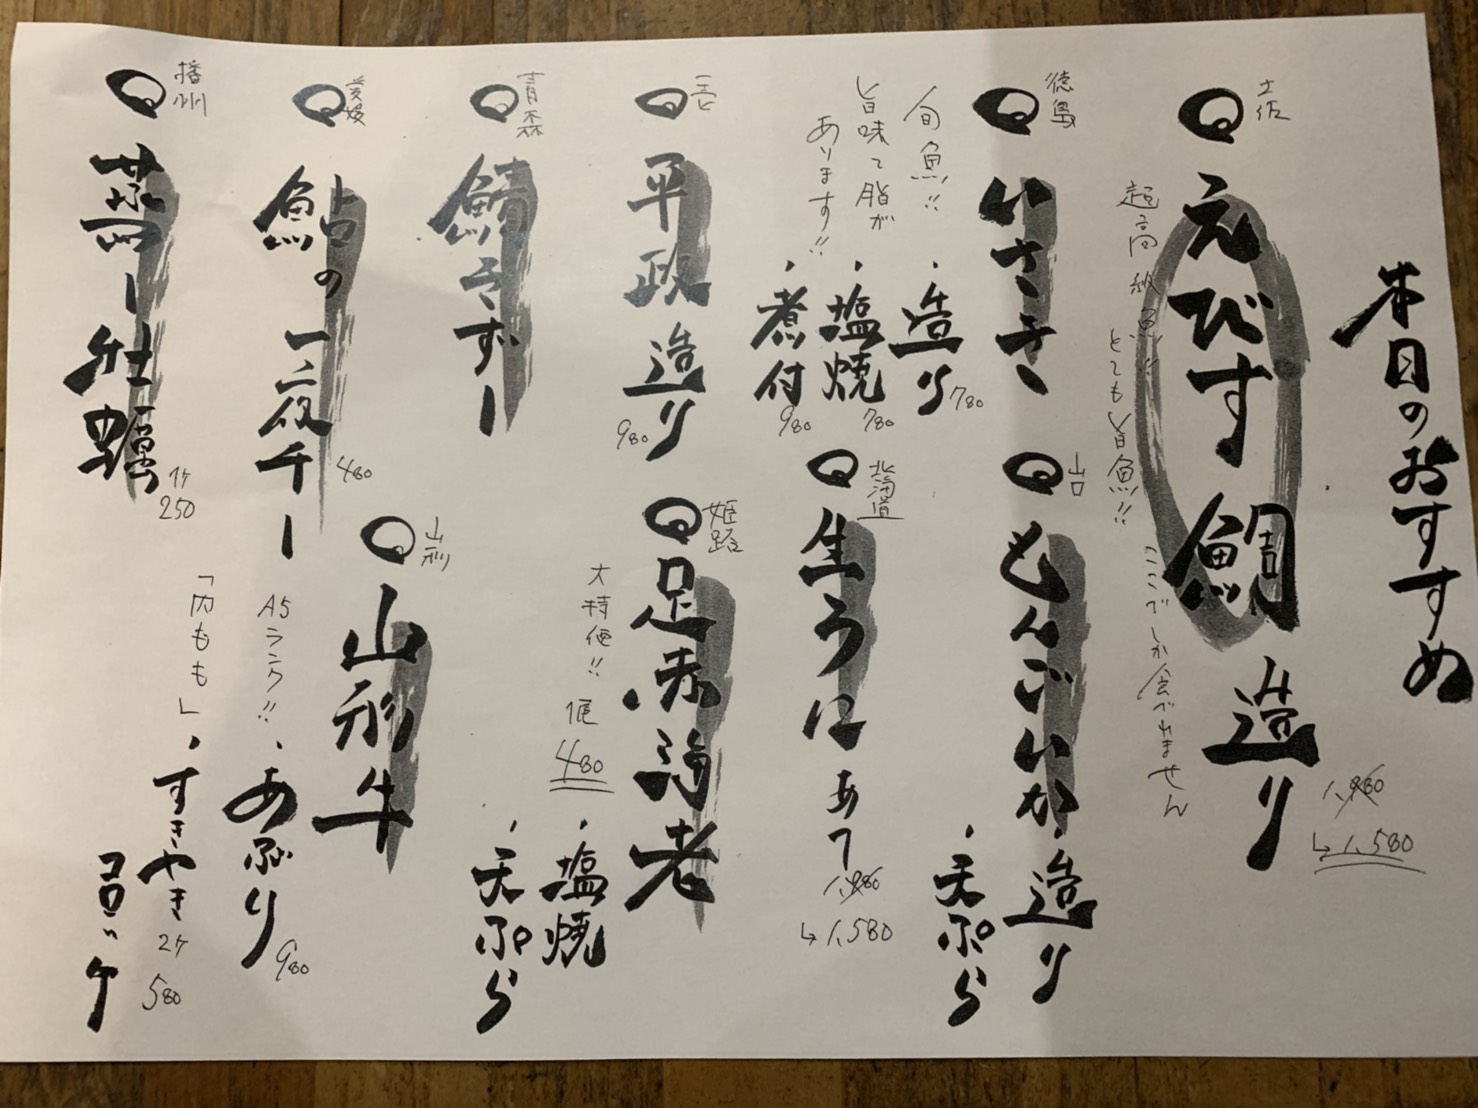 本日のおすすめ
土佐
えびす鯛 造り
1,980
↳1,580
超高級魚!!
とても旨魚!!
ここでしか食べれません
徳島
いさき
・造り 780
・塩焼 780
・煮付 980
旬魚!!
旨味て脂が
あります!!
山口
もんごいか
・造り
・天ぷら
北海道
生うに あて
1,980
↳1,580
平政 造り
980
姫路
足赤海老
大特価!!
1尾
480
・塩焼
・天ぷら
青森
鯖きずし
愛媛
鮎の一夜干し
480
山形
山形牛
A5ランク!!
「内もも」
・あぶり
980
・すきやき
コロッケ
2ケ
580
播州
蒸し牡蠣
1ケ
250